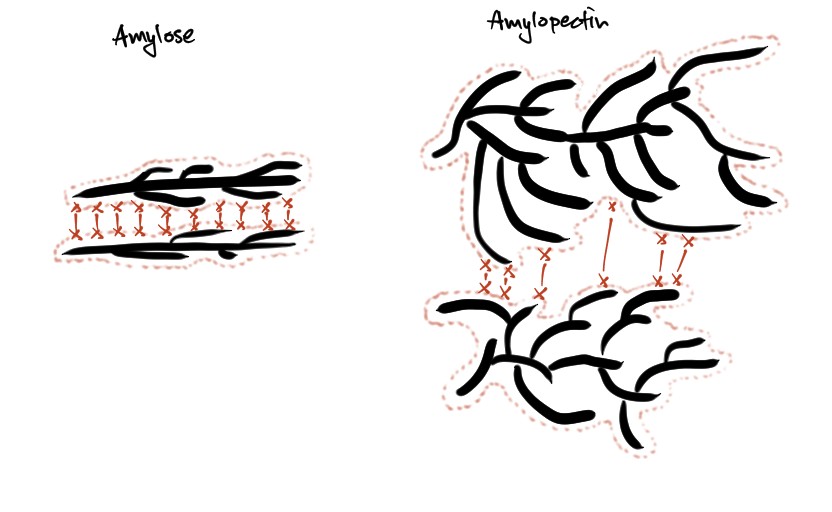 Amylose
Amylopectin